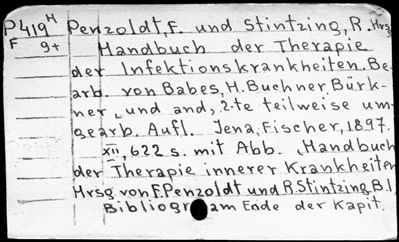 P419H Penzoldt, F. und Stintzing, R. Hrsg
F 9+ Handbuch der Therapie
der Infektionskrankheiten. Be-
arb. von Babes, H. Buchner, Bürk-
ner „und and; 2-te teilweise um-
gearb. Aufl. Jena, Fischer, 1897.
XII, 622 s. mit Abb. „Handbuch
der Therapie innerer Krankheiten
Hrsg. von F. Penzoldt und R. Stintzing B. 1
Bibliogr am Ende der Kapit.